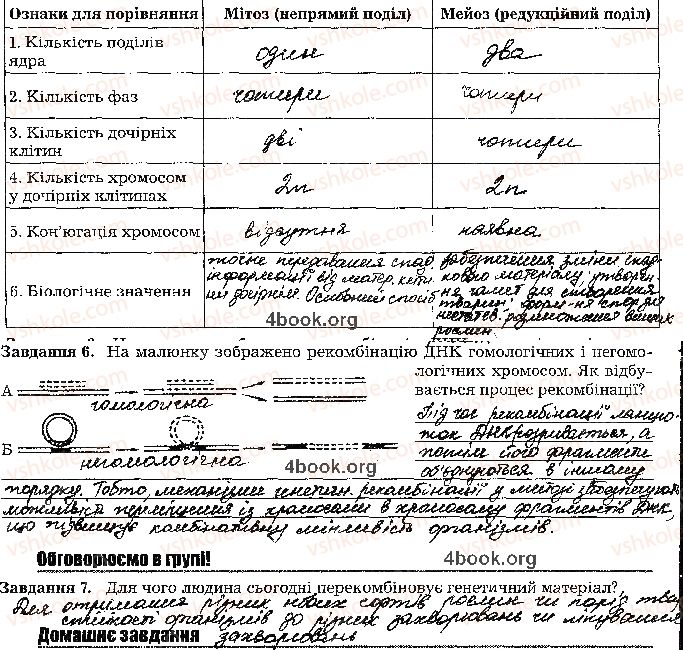 Ознаки для порівняння Мітоз (непрямий поділ) Мейоз (редукційний поділ)
1. Кількість поділів ядра один два
2. Кількість фаз чотири чотири
3. Кількість дочірніх клітин дві чотири
4. Кількість хромосом у дочірніх клітинах 2n 2n
5. Кон'югація хромосом відсутня наявна
6. Біологічне значення
точне передавання спад
інформації від матер. кліти
ни дочірнім. Основний спосіб
забезпечення зміни спад
кового матеріалу, утворен
ня гамет для створення
тварин;
розмноження вищих
рослин
4book.org
Завдання 6. На малюнку зображено рекомбінацію ДНК гомологічних і негомо-
логічних хромосом. Як відбу-
вається процес рекомбінації?
А
гомологічна
Б
негомологічна
4book.org
Під час рекомбінації ланцю-
жок ДНК розривається, а
потім його фрагменти
об'єднуються в іншому
порядку. Тобто, механізм генетичн. рекомбінації у мейозі
можливий переміщення із хромосоми в хромосому фрагментів ДНК,
що підвищує комбінативну мінливість організмів.
Обговорюємо в групі!
4book.org
Завдання 7. Для чого людина сьогодні перекомбіновує генетичний матеріал?
Для отримання різних нових сортів рослин чи порід твар
стійкості організмів до різних захворювань чи лікування
Домашнє завдання захворювань